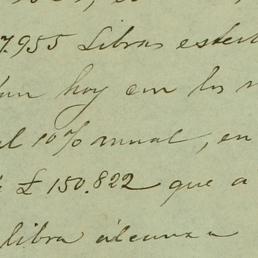 7.955 Libras
hoy con los
al 10% anual, en
£ 150.822 que a
libra alcanza a